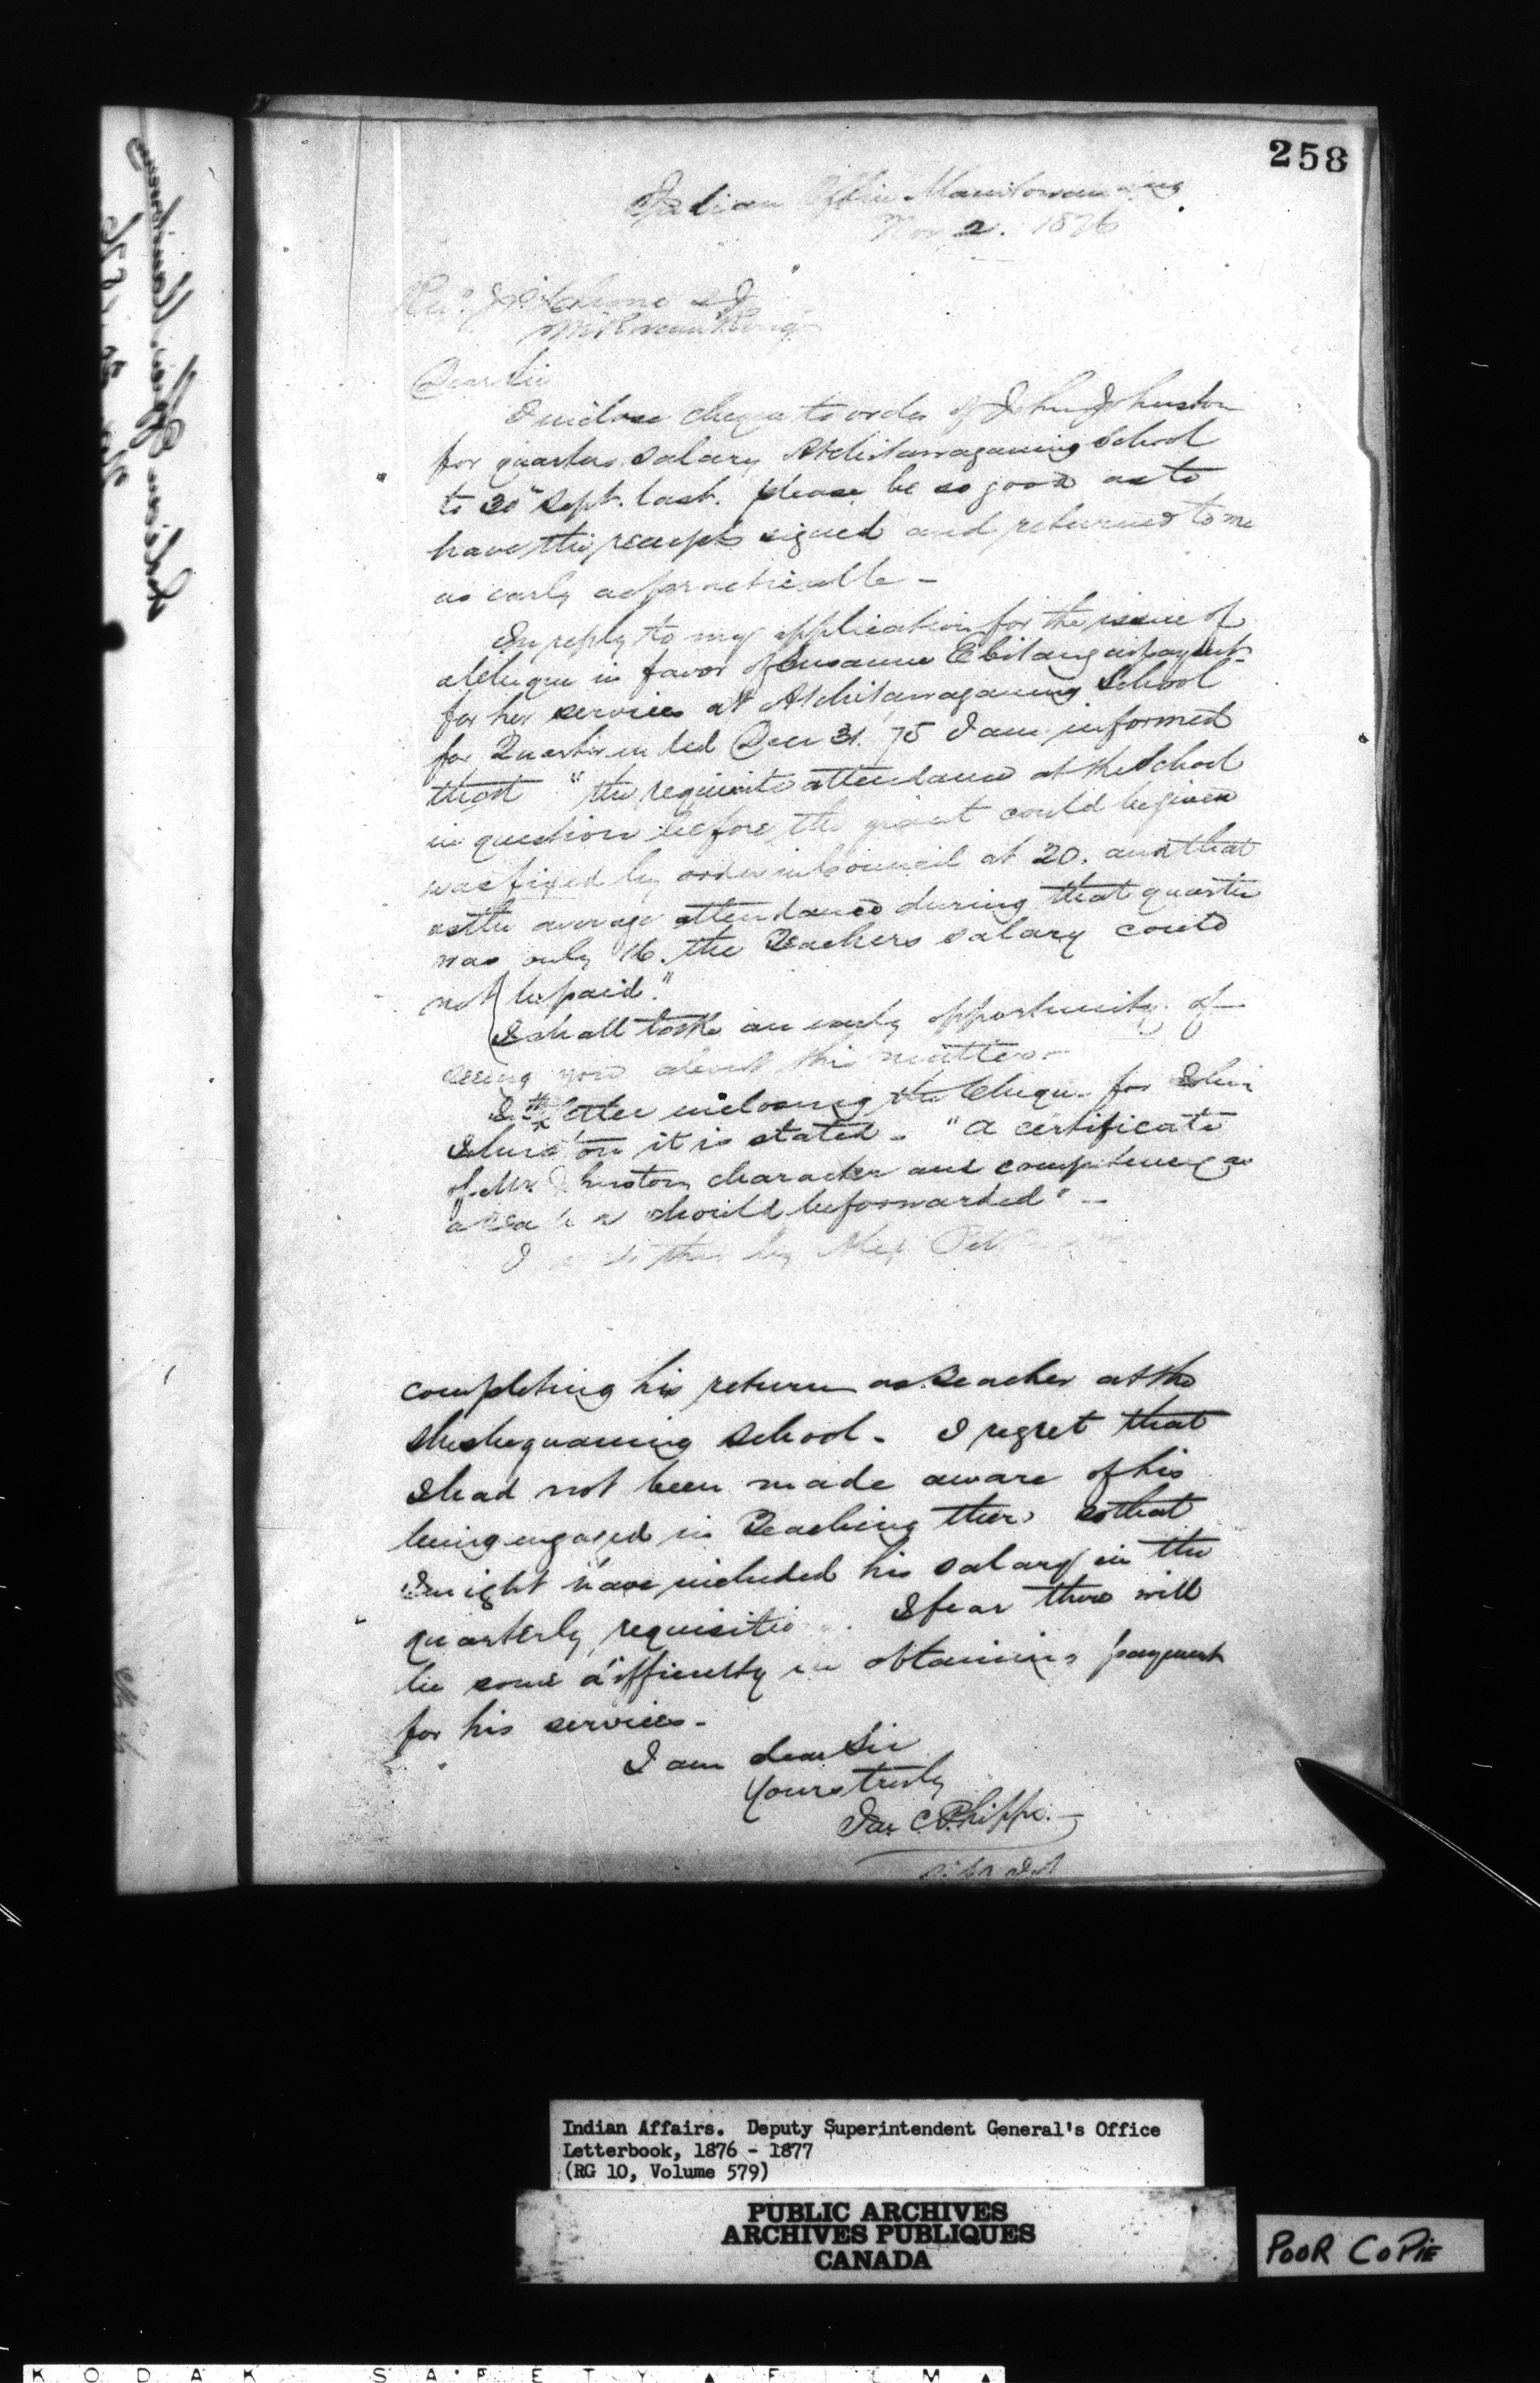 258
Indian Office Manitowaning
Nov 2. 1876
Rev.
Dear Sir
I inclose cheque to order of John Johnston
for quarters salary Atchitawaganing School
to 30" Sept. last. please be so good as to
have the receipts signed and returned to me
as early as practicable -
In reply to my application for the issue of
a Cheque in favor of Susanne
for her services at Atchitawaganing School
for Quarter ended Decr 31. 75 I am informed
that "the requisite attendance at the School
in question before the grant could be given
was fixed by order in Council at 20. and that
as the average attendance during that quarter
was only 16. the Teachers salary could
not be paid."
I shall take an early opportunity of
seeing you about this matter -
I the letter inclosing the Cheque for John
Johnston it is stated - "a certificate
of Mr. Johnston character and competency as
a should be forwarded" -
I this by
completing his return as Teacher at the
Sheshegwaning School - I regret that
I had not been made aware of his
being engaged in Teaching there so that
I might have included his salary in the
quarterly requisitio . I fear there will
be some difficulty in obtaining payment
for his services -
I am dear Sir
Yours truly
Jas. C Phipps. -
Indian Affairs. Deputy Superintendent General's Office
Letterbook, 1876 - 1877
(RG 10, Volume 579)
PUBLIC ARCHIVES
ARCHIVES PUBLIQUES
CANADA
POOR COPIE
KODAK SAFETY FILM